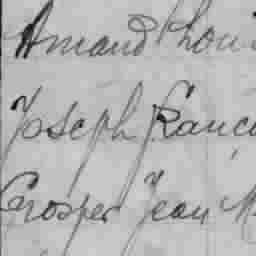 Amand Loui
Joseph Franço
Prosper Jean M